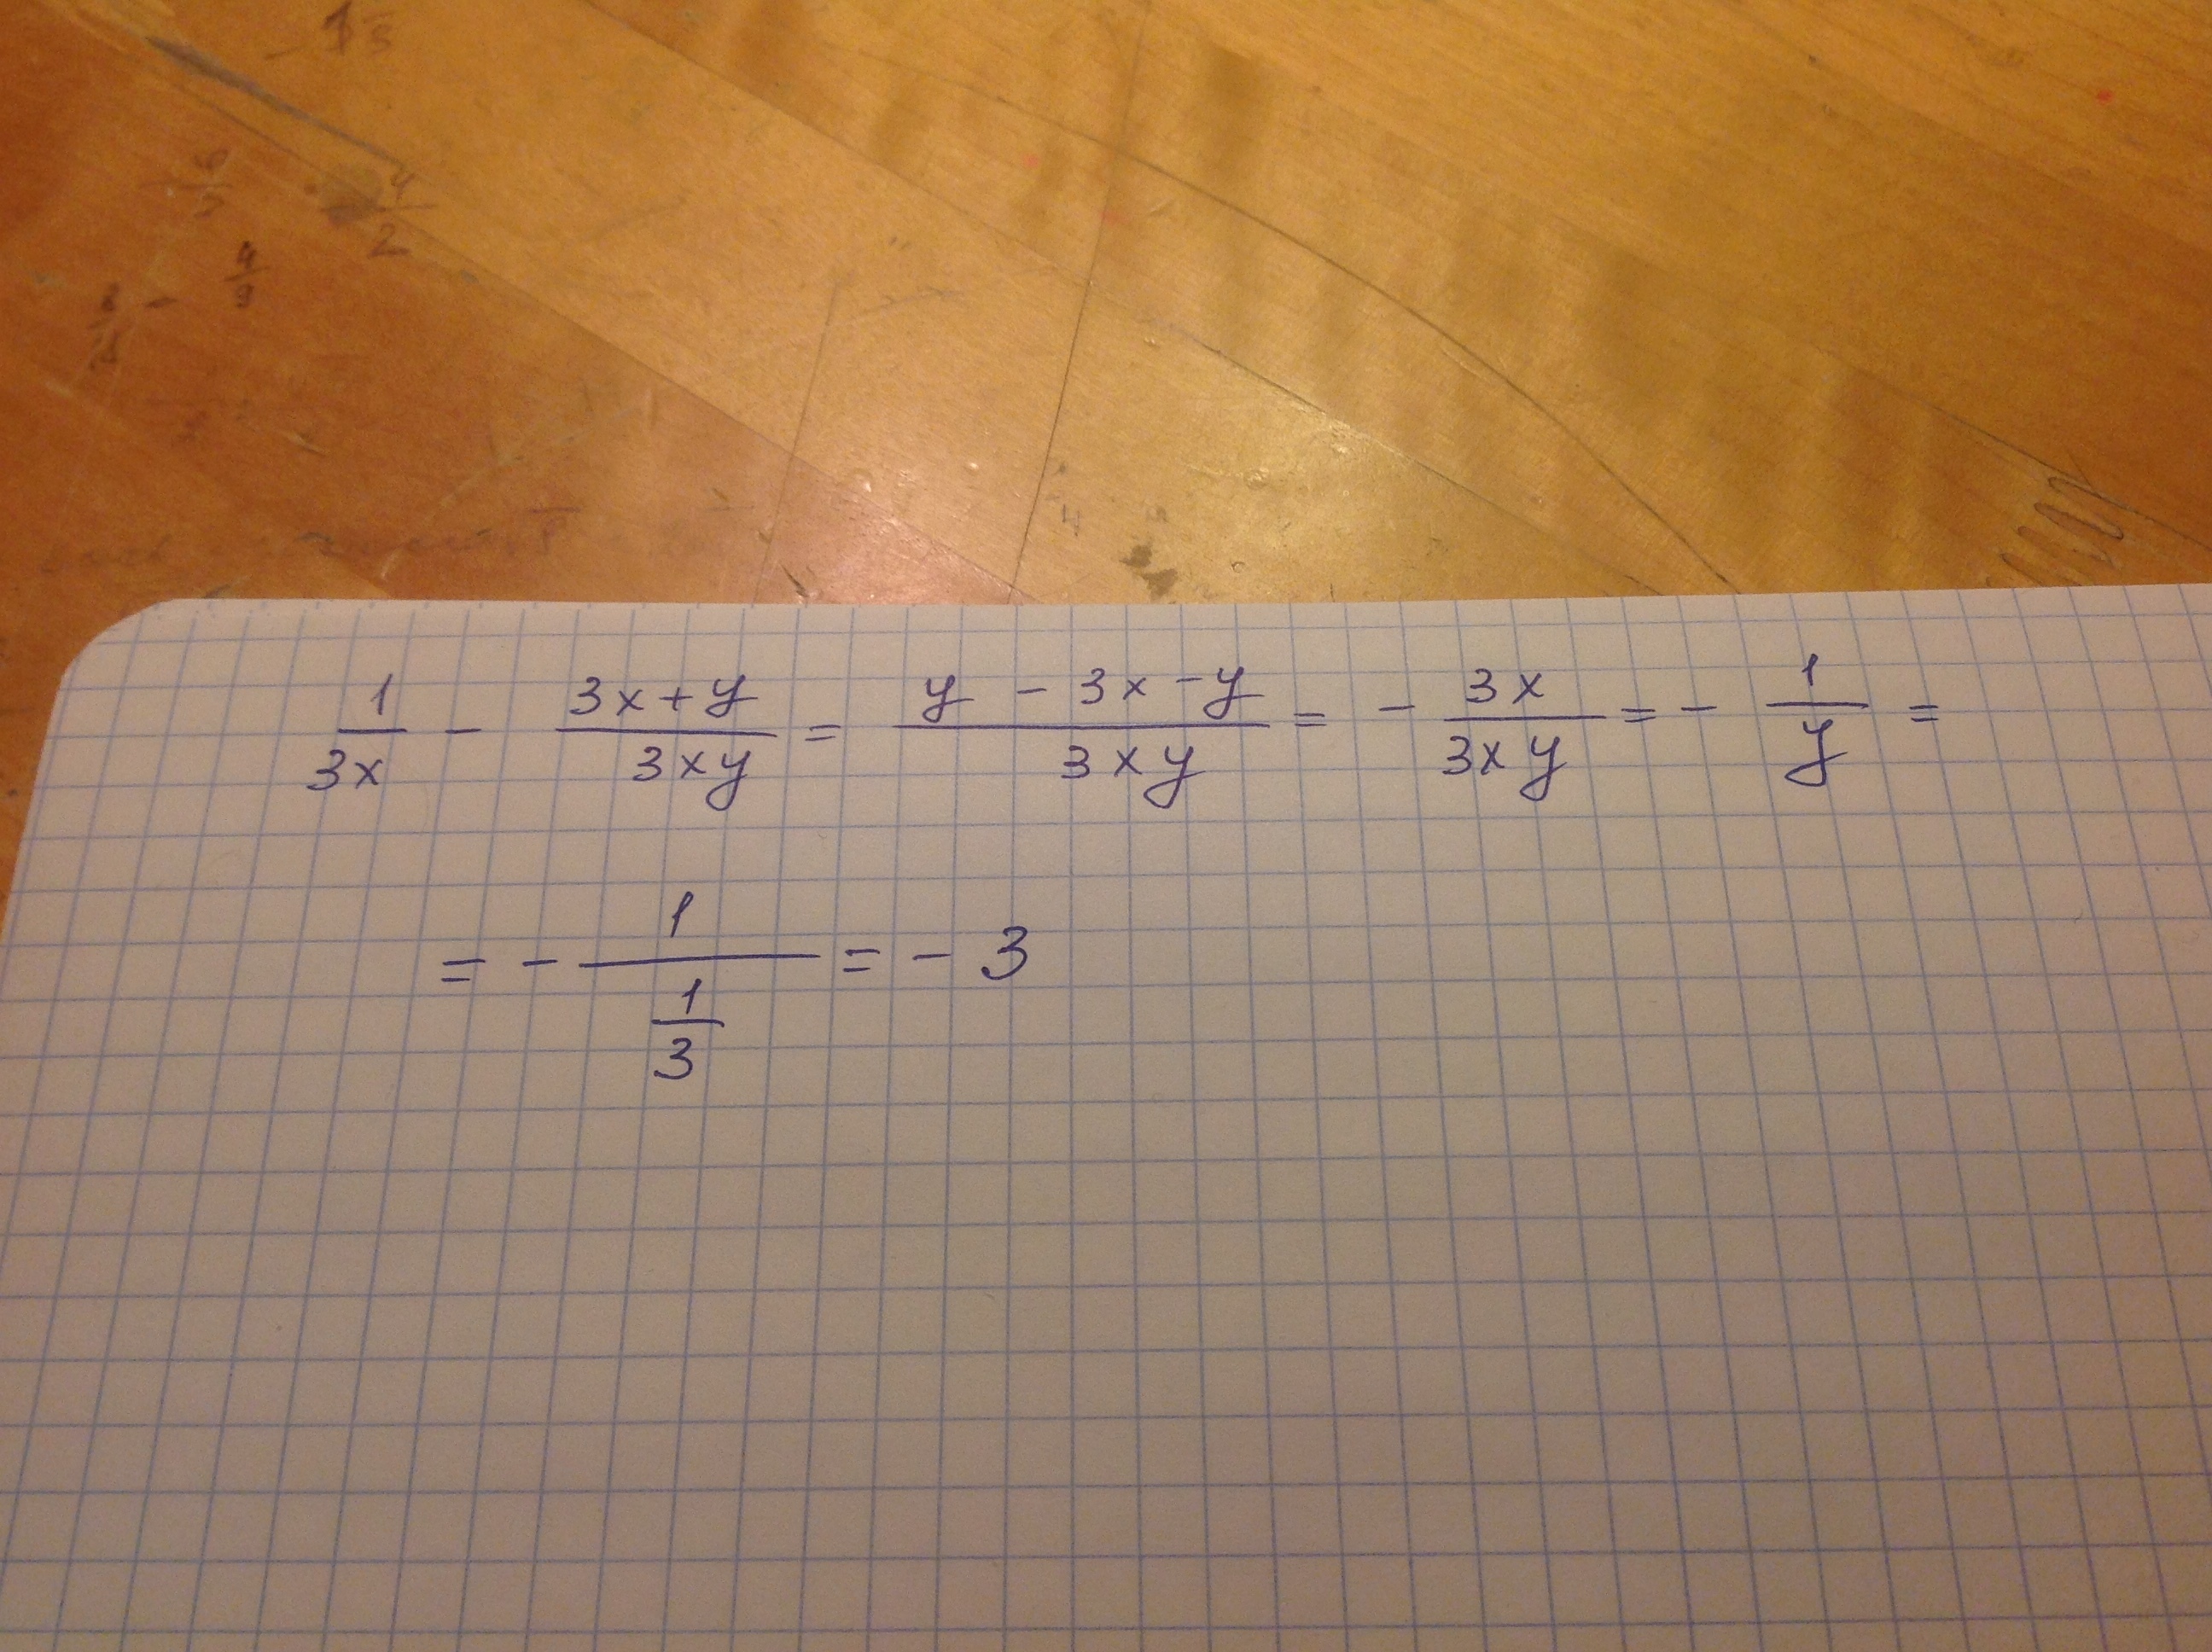 1/3x - 3x+y/3xy = y - 3x - y/3xy = - 3x/3xy = - 1/y =
= - 1/(1/3) = - 3